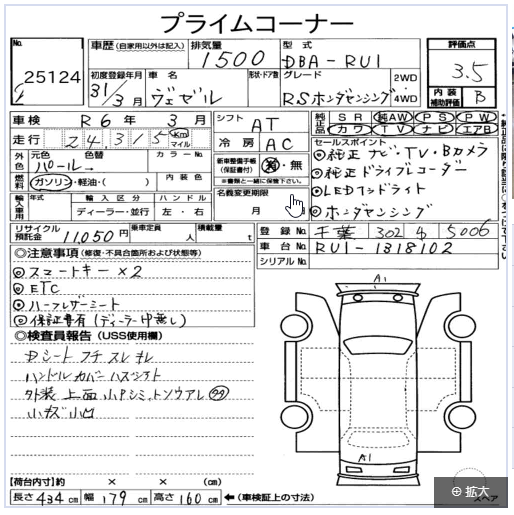 プライムコーナー
No.
25124
車歴 (自家用以外は記入)
排気量
1500
型式
DBA-RU1
評価点
3.5
初度登録年月
31/3月
車名
ヴェゼル
形状・ドア数
グレード
RSホンダセンシング
2WD
4WD
内装補助評価
B
車検 R6年3月
シフト
AT
純正品
SR 純AW PS PW
カワ TV ナビ エアB
走行 24,315 km マイル
冷房 AC
セールスポイント
◎純正ナビ・TV・Bカメラ
◎純正ドライブレコーダー
◎LEDヘッドライト
◎ホンダセンシング
外色 元色 色替
パール
カラーNo.
新車整備手帳 (保証書付) 有・無
※書類と一緒に保管下さい。
燃料 ガソリン・軽油・( )
内装色
名義変更期限
月
輸入車用 年式 輸入区分 ハンドル
ディーラー・並行 左・右
リサイクル預託金 11,050円
乗車定員 人
積載量 t
登録No. 千葉 302 5006
車台No. RU1-1318102
シリアルNo.
◎注意事項 (修復・不具合箇所および状態等)
◎スマートキー×2
◎ETC
◎ハーフレザーシート
◎保証書有(ディーラー印無し)
◎検査員報告 (USS使用欄)
Dシート フチ スレ
ハンドルカバー
外装 上面 小
小キズ 小凹
A1
A1
【荷台内寸】約 × × (cm)
長さ 434cm 幅 179cm 高さ 160cm ←(車検証上の寸法)
スペア
拡大